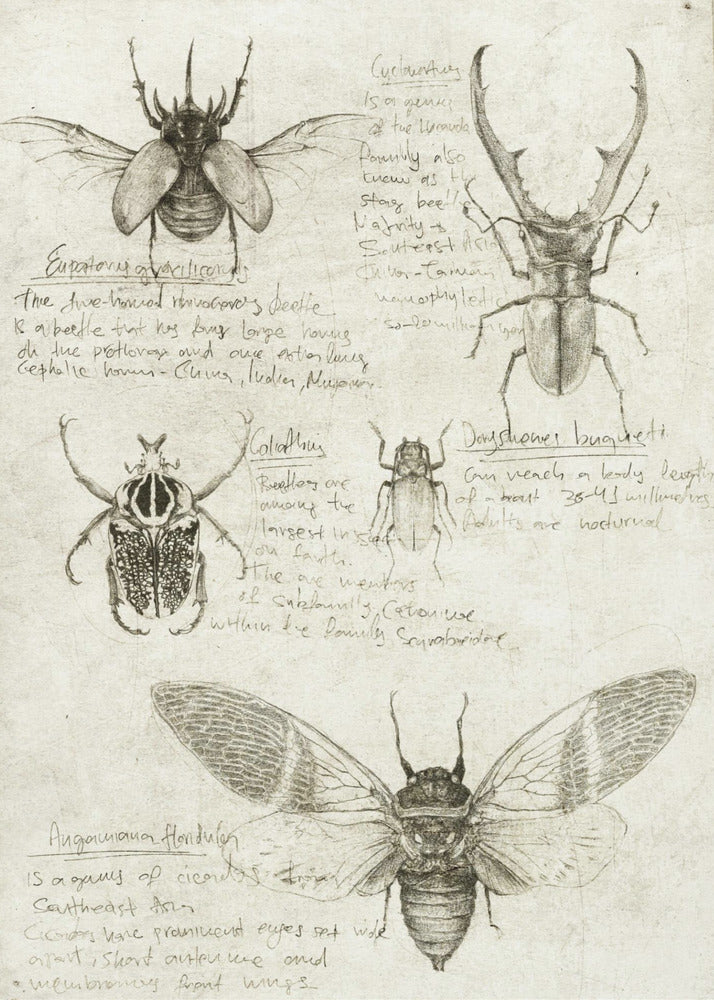 Eupatorus gracilicornis
The five-horned rhinocerous beetle
is a beetle that has four large horns
on the prothorax and one extra long
cephalic horn - China, India,
Cyclommatus
is a genus
of the
family also
known as the
stag beetle
Majority
Southeast Asia
China-Taiwan
monophyletic
Goliathus
Beetles are
among the
largest insects
on earth.
The are members
of subfamily Cetoniinae
within the family Scarabaeidae
buqueti
Can reach a body length
of about 38-43 millimetres
Adults are nocturnal
Angamiana floridula
is a genus of cicadas from
Southeast Asia
Cicadas have prominent eyes set wide
apart, short antennae and
membranous front wings